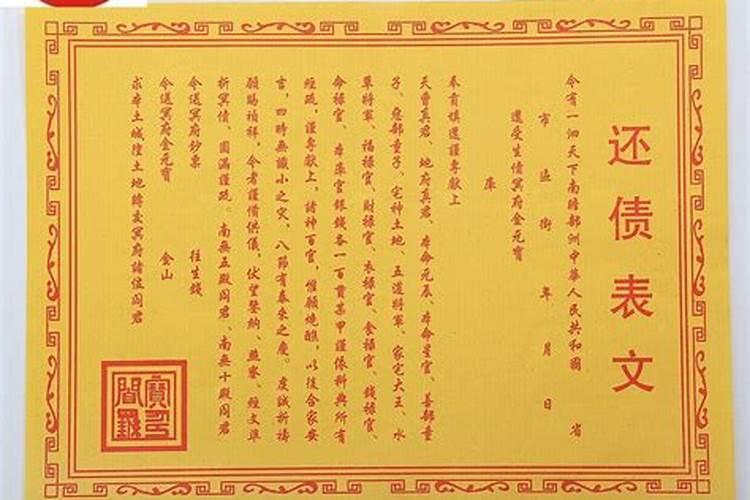 还债表文
今有一泗天下南瞻部洲中華人民共和國 省
市 區 街 年 月 日
還受生債冥府金元寶
庫
奉育填還謹專献上
天曹真君、地府真君、本命元辰、本命星官、善部童
子、惡部童子、宅神土地、五道將軍、家宅大王、水
草將軍、福禄官、財禄官、衣禄官、食禄官、錢禄官、
命禄官、本庫官銀錢各一百貫某甲謹依科典所有
經疏，謹專献上，諸神百官，惟願燒醮，以後合家安
言，四時無識小之灾，八節有泰來之慶。虔誠祈禱
願賜禎祥，令者謹備供儀，伏望鑒納、燕寮、經文準
折冥債、圓滿謹疏。南無五殿阎君、南無十殿阎君
今送冥府鈔票 往生錢
今送冥府金元寶 金山
求本土城隍土地轉交冥府諸位阎君